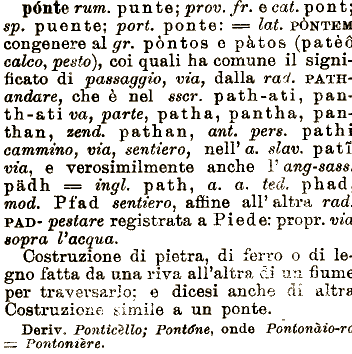 pónte rum. punte; prov. fr. e cat. pont;
sp. puente; port. ponte: = lat. PÒNTEM
congenere al gr. pòntos e pàtos (patèô
calco, pesto), coi quali ha comune il signi-
ficato di passaggio, via, dalla rad. PATH-
andare, che è nel sscr. path-ati, pan-
th-ati va, parte, patha, pantha, pan-
than, zend. pathan, ant. pers. pathi
cammino, via, sentiero, nell' a. slav. patĭ
via, e verosimilmente anche l' ang-sass.
pädh = ingl. path, a. a. ted. phad,
mod. Pfad sentiero, affine all' altra rad.
PAD- pestare registrata a Piede: propr. via
sopra l'acqua.
Costruzione di pietra, di ferro o di le-
gno fatta da una riva all'altra di un fiume
per traversarlo: e dicesi anche di altra
Costruzione simile a un ponte.
Deriv. Ponticèllo; Pontóne, onde Pontonàio-ro
= Pontonière.